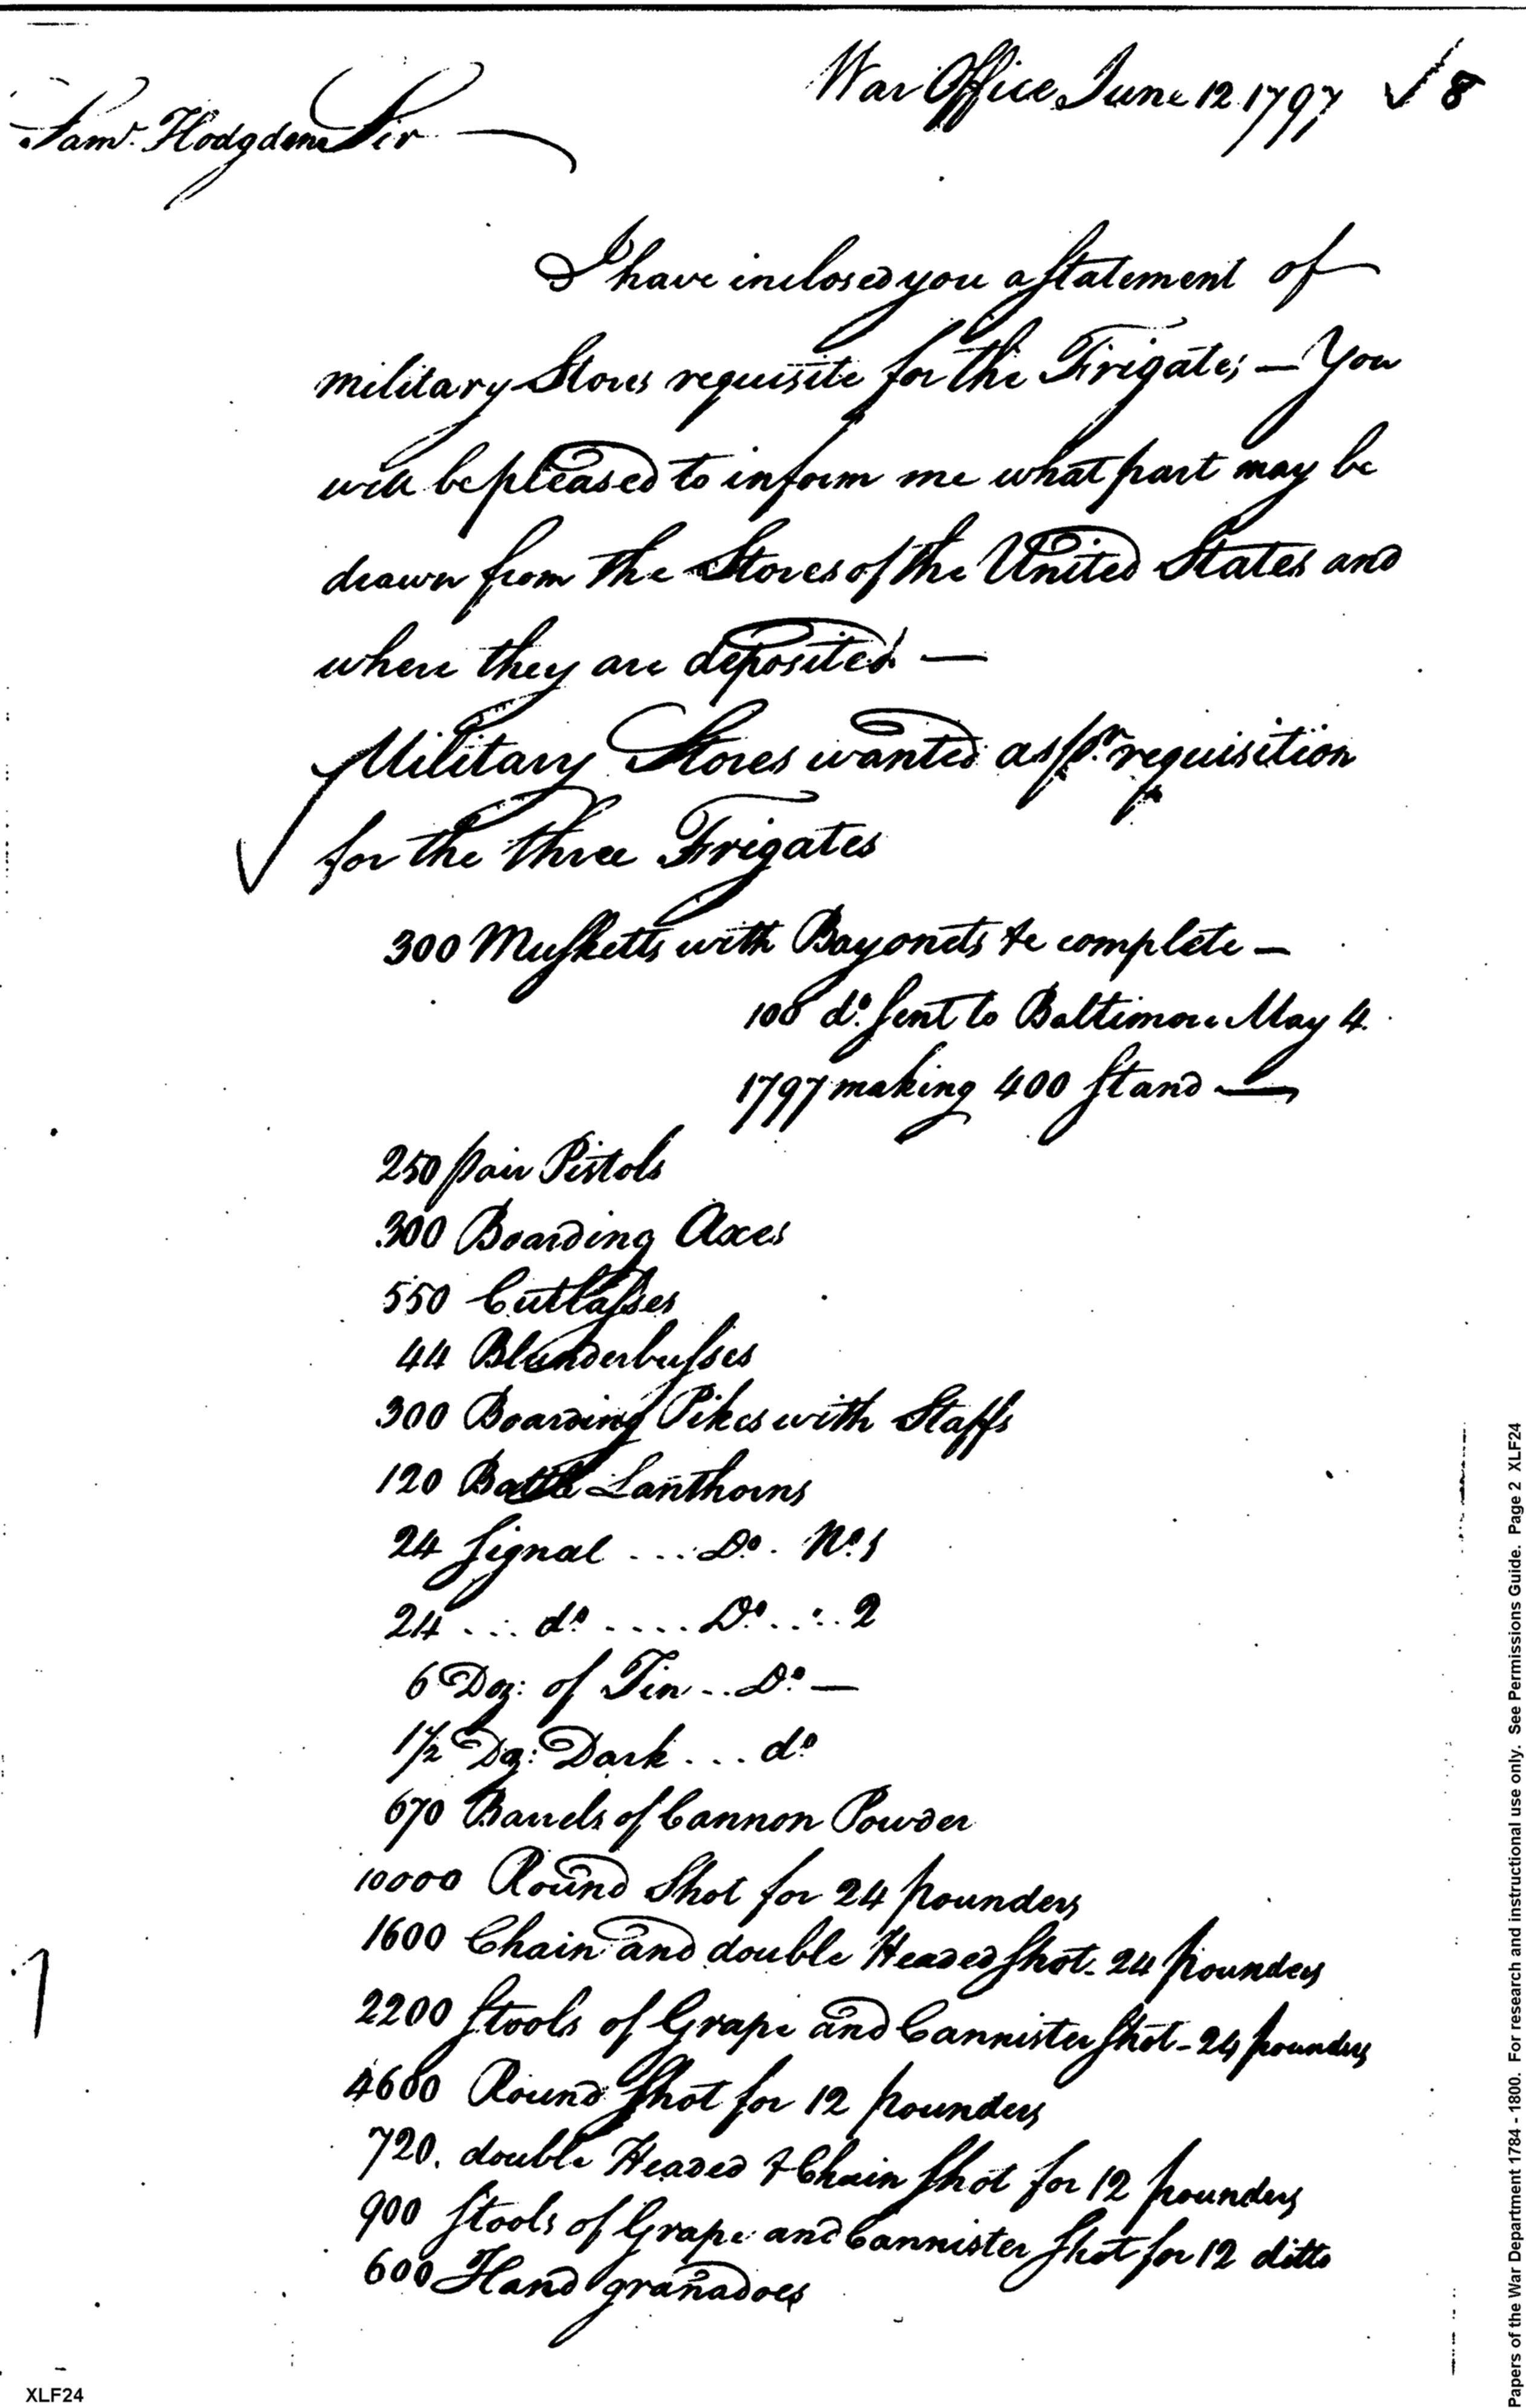 War Office June 12 1797 8
Saml. Hodgdon Sir
I have inclosed you a Statement of
military Stores requisite for the Frigates; — You
will be pleased to inform me what part may be
drawn from the Stores of the United States and
where they are deposited —
Military Stores wanted as pr. requisition
for the three Frigates
300 Musketts with Bayonets &c complete —
100 do. Sent to Baltimore May 4.
1797 making 400 Stand —
250 pair Pistols
300 Boarding Axes
550 Cutlasses
44 Blunderbusses
300 Boarding Pikes with Staffs
120 Battle Lanthorns
24 Signal ... Do. No. 1
24 ... do .... Do. ... 2
6 Doz: of Tin .. Do. —
1½ Doz: Dark ... do
670 Barrels of Cannon Powder
10000 Round Shot for 24 pounders
1600 Chain and double Headed Shot - 24 pounders
2200 Stools of Grape and Cannister Shot - 24 pounders
4600 Round Shot for 12 pounders
720. double Headed & Chain Shot for 12 pounders
900 Stools of Grape and Cannister Shot for 12 ditto
600 Hand granadoes
XLF24
Papers of the War Department 1784 - 1800. For research and instructional use only. See Permissions Guide. Page 2 XLF24